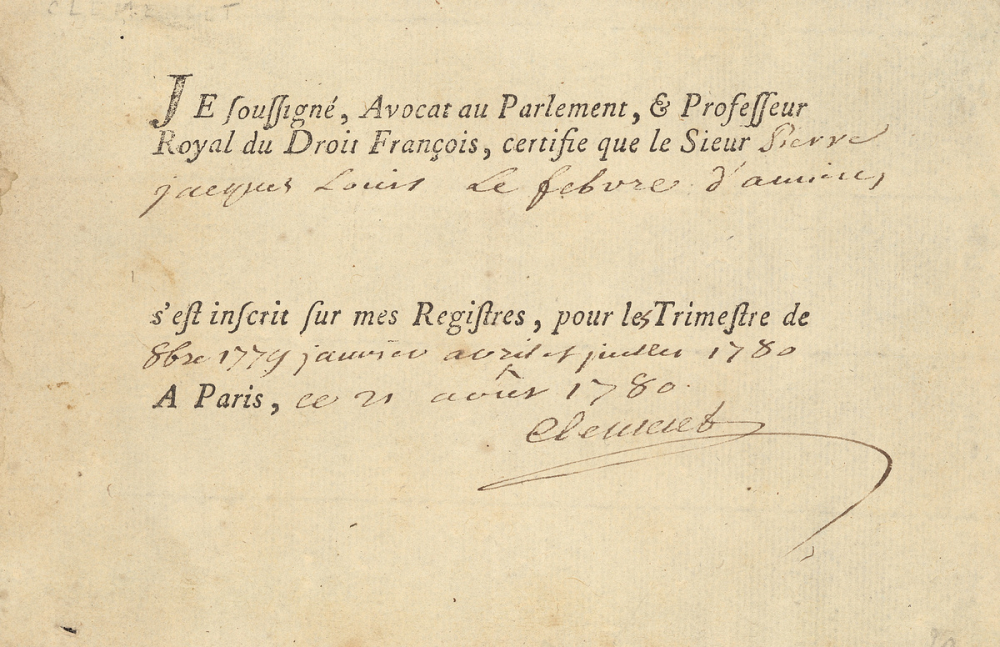 CLEMENCET
JE soussigné, Avocat au Parlement, & Professeur
Royal du Droit François, certifie que le Sieur Pierre
jacques Louis Le febvre d'amiens
s'est inscrit sur mes Registres, pour les Trimestre de
8bre 1779 janvier avril et juillet 1780
A Paris, ce 21 août 1780.